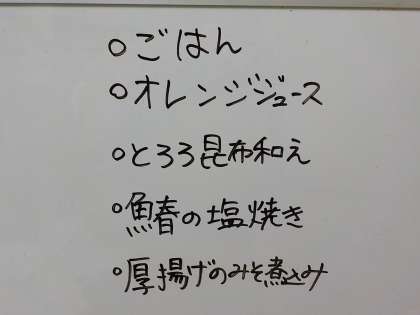 ○ごはん
○オレンジジュース
○とろろ昆布和え
○鰆の塩焼き
○厚揚げのみそ煮込み